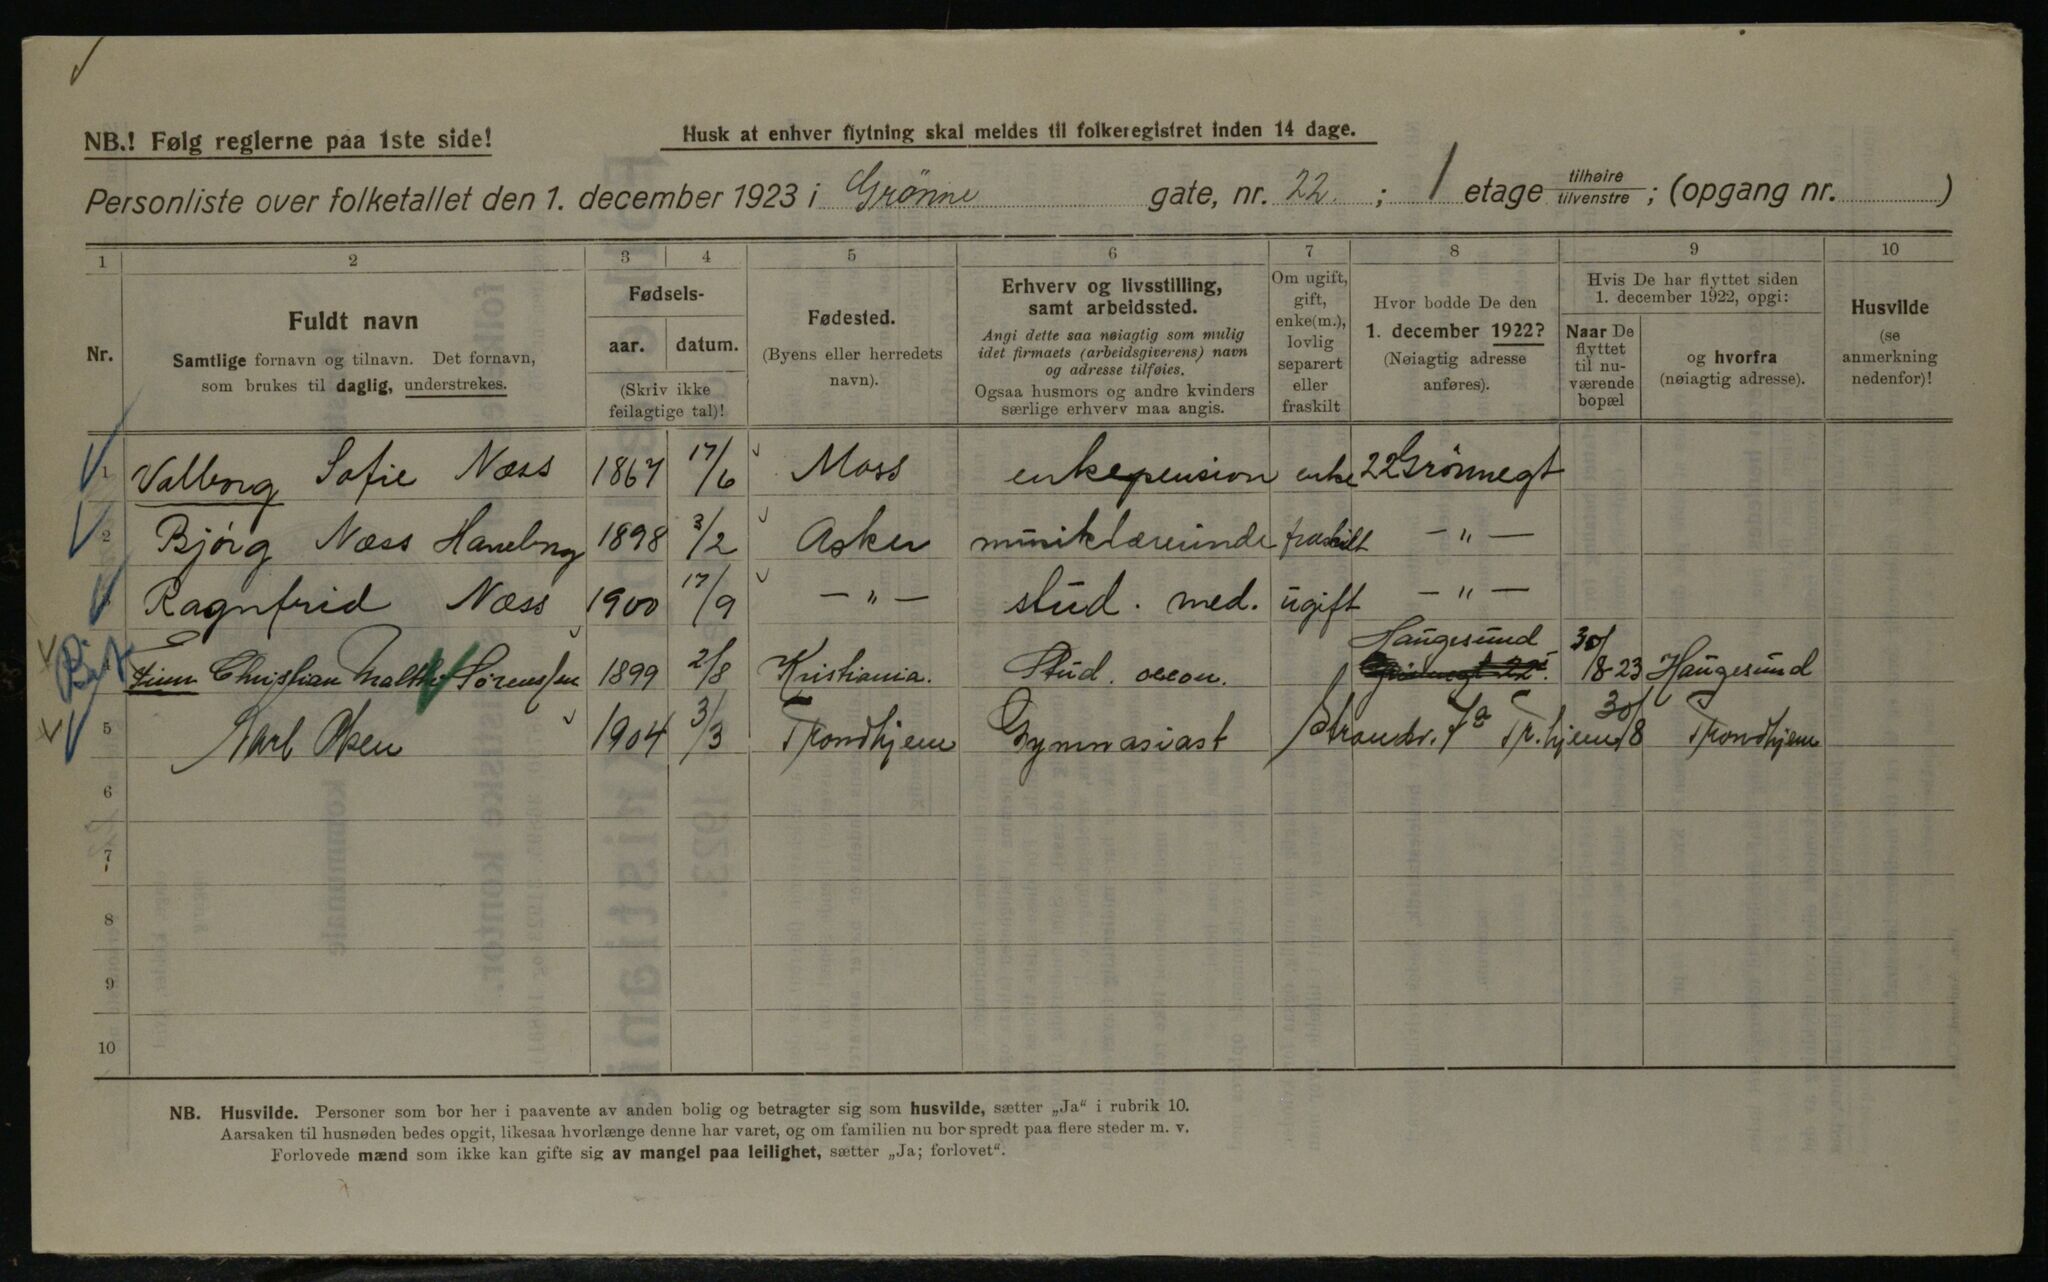 NB.! Følg reglerne paa 1ste side!
Husk at enhver flytning skal meldes til folkeregistret inden 14 dage.
Personliste over folketallet den 1. december 1923 i Grønne gate, nr. 22. ; 1 etage tilhøire tilvenstre ; (opgang nr. )
1 2 3 4 5 6 7 8 9 10
Nr.
Fuldt navn
Samtlige fornavn og tilnavn. Det fornavn,
som brukes til daglig, understrekes.
Fødsels-
aar. datum.
(Skriv ikke
feilagtige tal)!
Fødested.
(Byens eller herredets
navn).
Erhverv og livsstilling,
samt arbeidssted.
Angi dette saa nøiagtig som mulig
idet firmaets (arbeidsgiverens) navn
og adresse tilføies.
Ogsaa husmors og andre kvinders
særlige erhverv maa angis.
Om ugift,
gift,
enke(m.),
lovlig
separert
eller
fraskilt
Hvor bodde De den
1. december 1922?
(Nøiagtig adresse
anføres).
Hvis De har flyttet siden
1. december 1922, opgi:
Naar De
flyttet
til nu-
værende
bopæl
og hvorfra
(nøiagtig adresse).
Husvilde
(se
anmerkning
nedenfor)!
1 Valborg Sofie Næss 1867 17/6 Moss enkepension enke 22 Grønnegt
2 Bjørg Næss Haneborg 1898 3/2 Asker musiklærerinde fraskilt — " —
3 Ragnfrid Næss 1900 17/9 — " — stud. med. ugift — " —
4 Finn Christian Malthe Sørenssen 1899 2/8 Kristiania. Stud. oecon. Haugesund 30/8-23 Haugesund
5 Karl Olsen 1904 3/3 Trondhjem Gymnasiast Strandv. 7a Tr.hjem 30/8 Trondhjem
6
7
8
9
10
NB. Husvilde. Personer som bor her i paavente av anden bolig og betragter sig som husvilde, sætter „Ja“ i rubrik 10.
Aarsaken til husnøden bedes opgit, likesaa hvorlænge denne har varet, og om familien nu bor spredt paa flere steder m. v.
Forlovede mænd som ikke kan gifte sig av mangel paa leilighet, sætter „Ja; forlovet“.